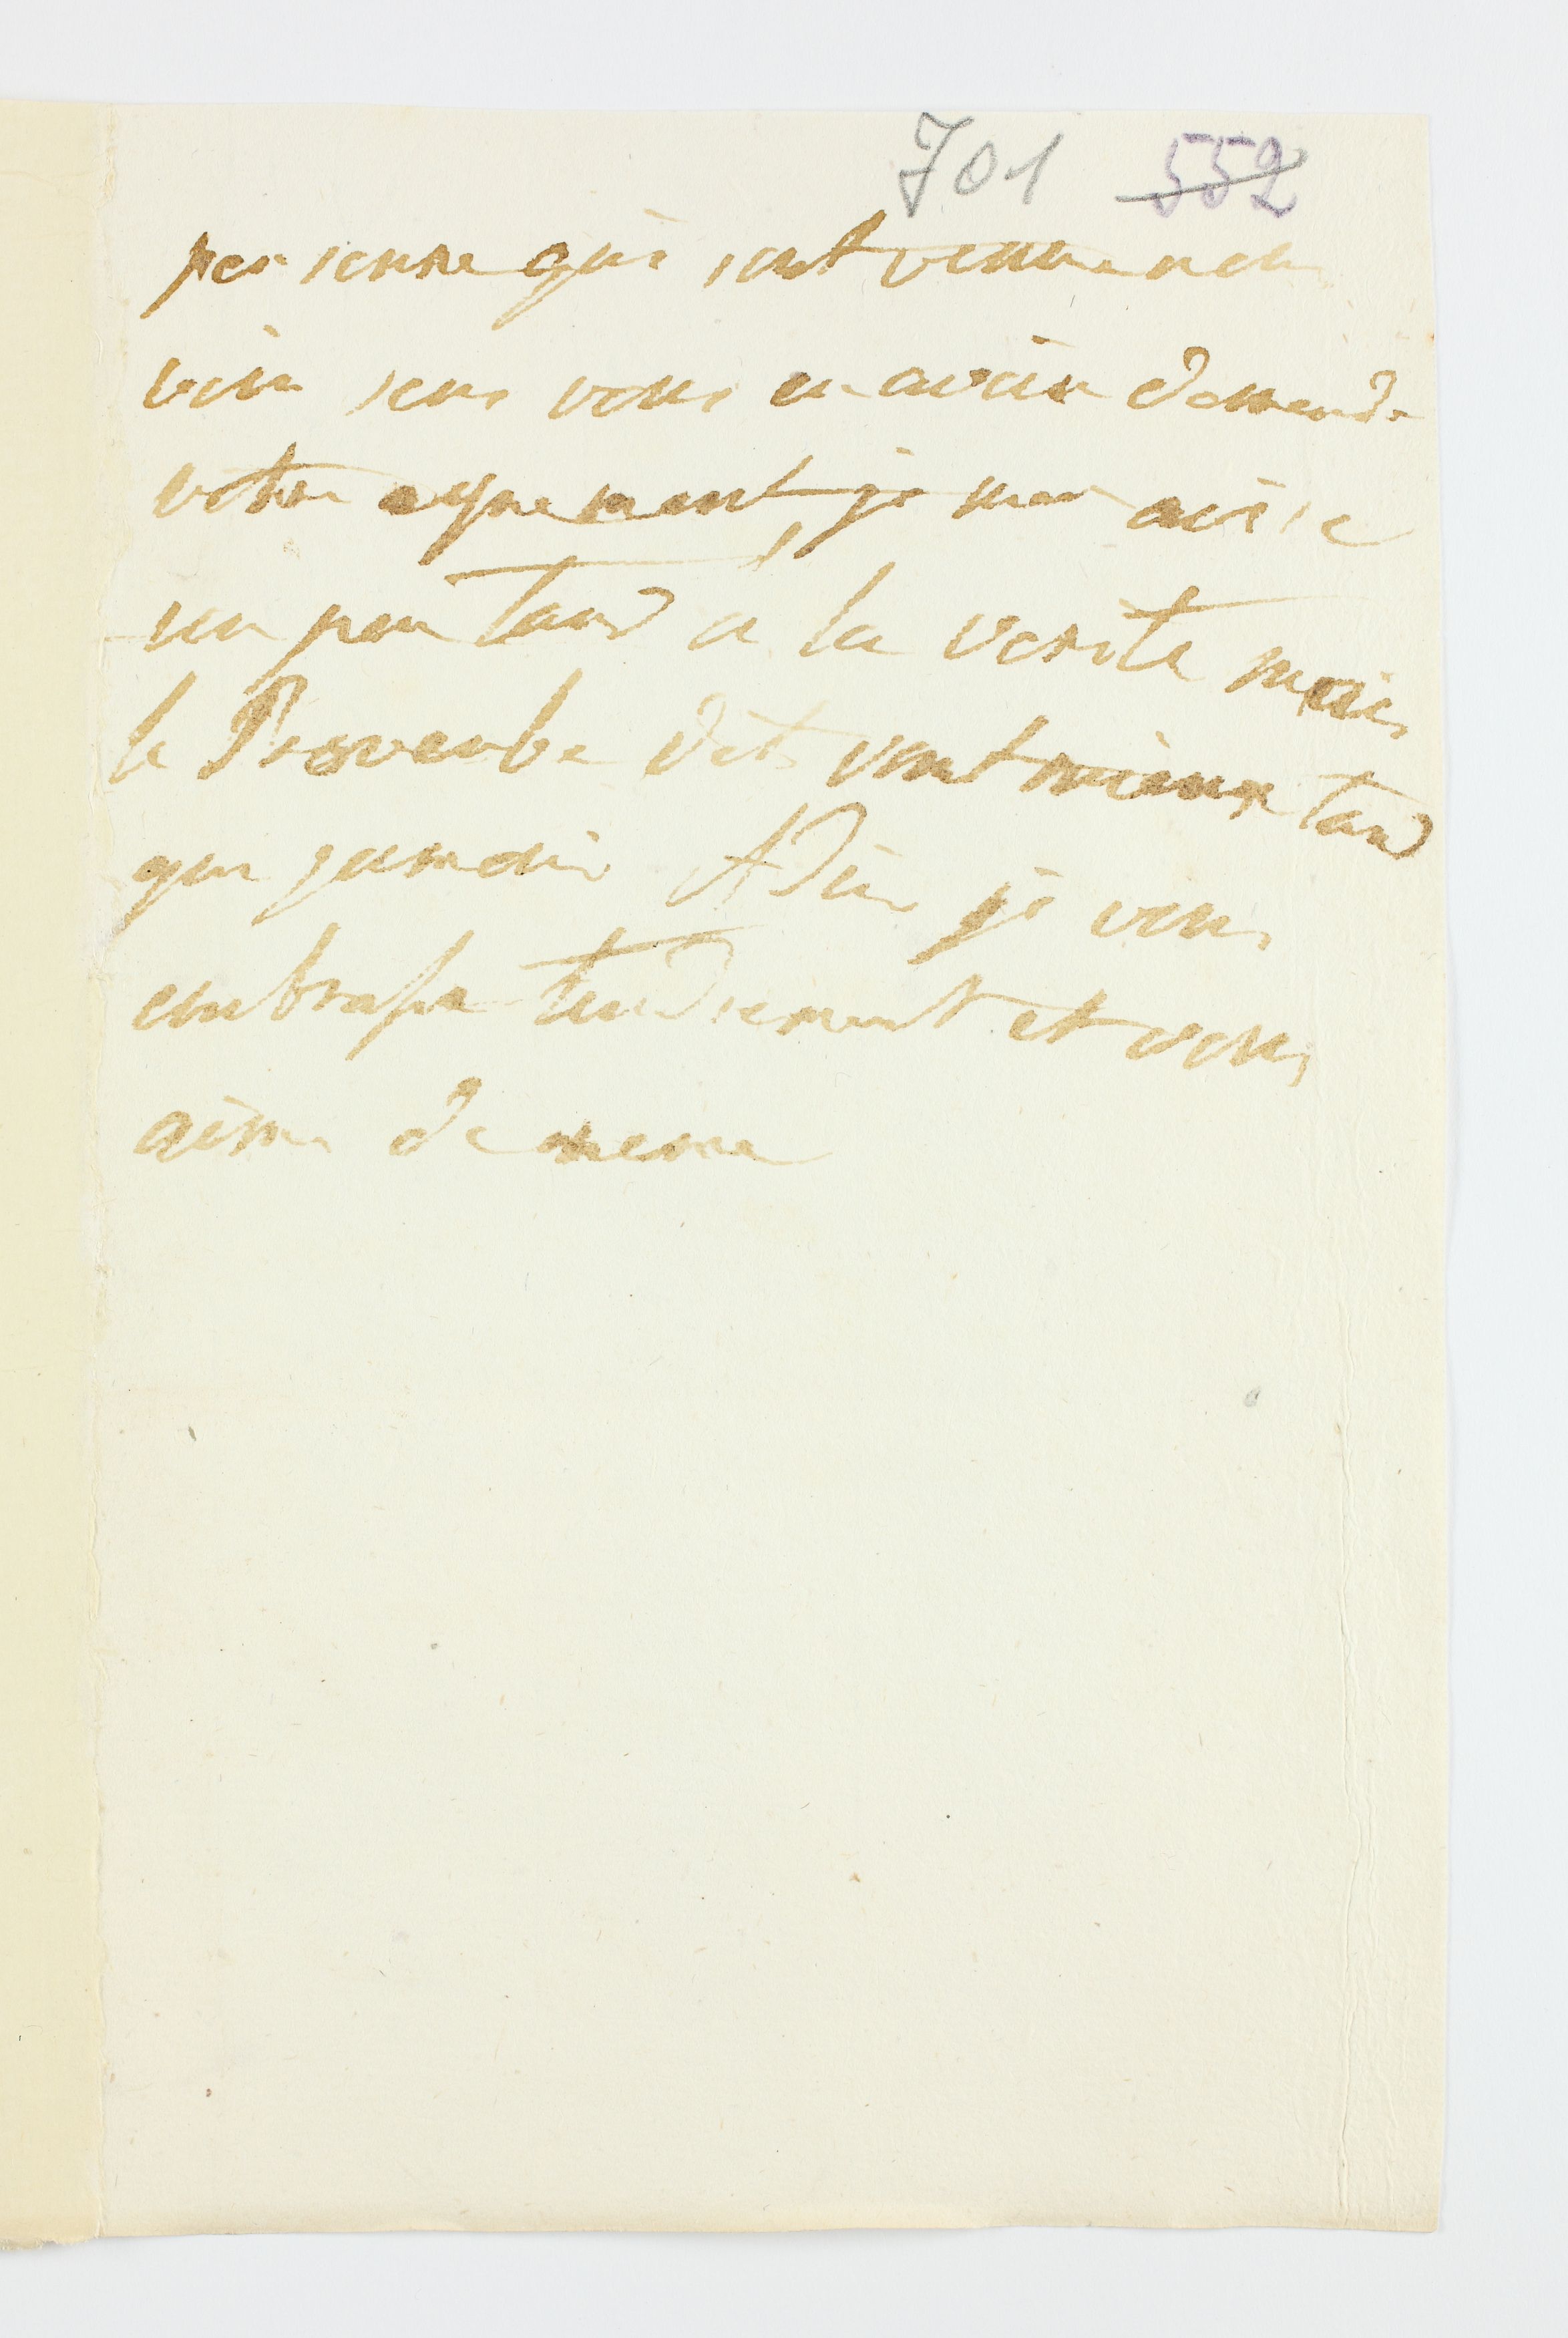 701 552
personne qui sont venue me
voir sens vous en avoir demende
votre agrement je men avise
un peu tard a la verité mais
le Proverbe dit vaut mieux tard
que jamais Adieu je vous
embrasse tendrement et vous
aime de meme